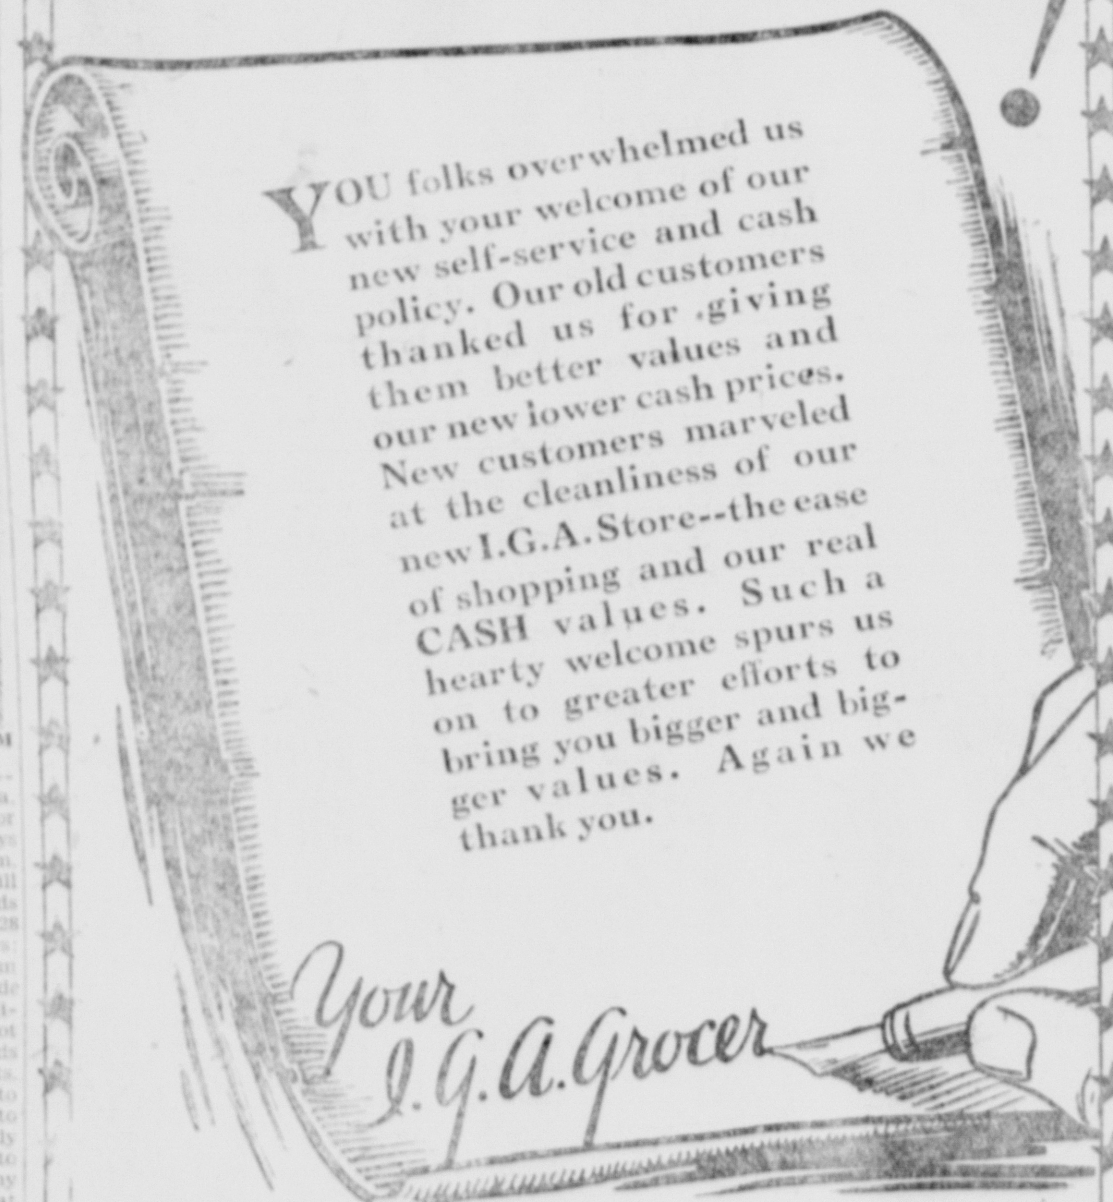 YOU folks overwhelmed us
with your welcome of our
new self-service and cash
policy. Our old customers
thanked us for giving
them better values and
our new lower cash prices.
New customers marveled
at the cleanliness of our
new I.G.A. Store--the ease
of shopping and our real
CASH values. Such a
hearty welcome spurs us
on to greater efforts to
bring you bigger and big-
ger values. Again we
thank you.
Your
I.G.A. Grocer